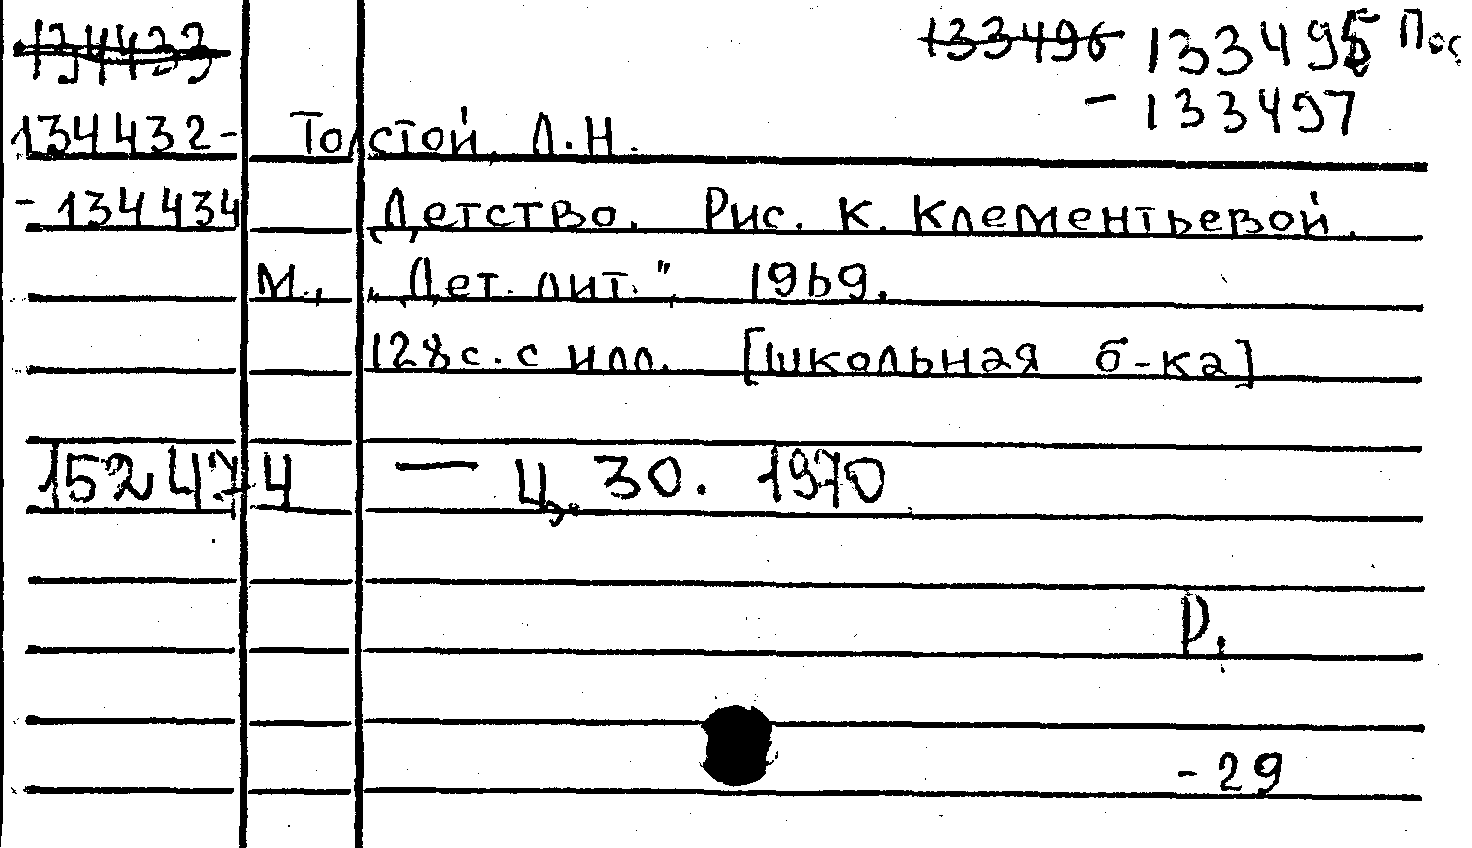 134433 133496 133495 Пос
- 133497
134432- Толстой, Л.Н.
- 134434 Детство. Рис. К. Клементьевой.
М., „Дет. лит.", 1969.
128 с. с илл. [Школьная б-ка]
152474 — ц. 30. 1970
Р.
- 29